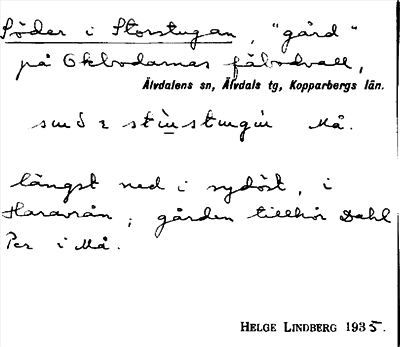 Söder i Storstugan, "gård"
på Okbodarnas fäbodvall,
Älvdalens sn, Älvdals tg, Kopparbergs län.
Må.
längst ned i sydöst, i
Haravrån; gården tillhör Dahl
Per i Må.
HELGE LINDBERG 1935.